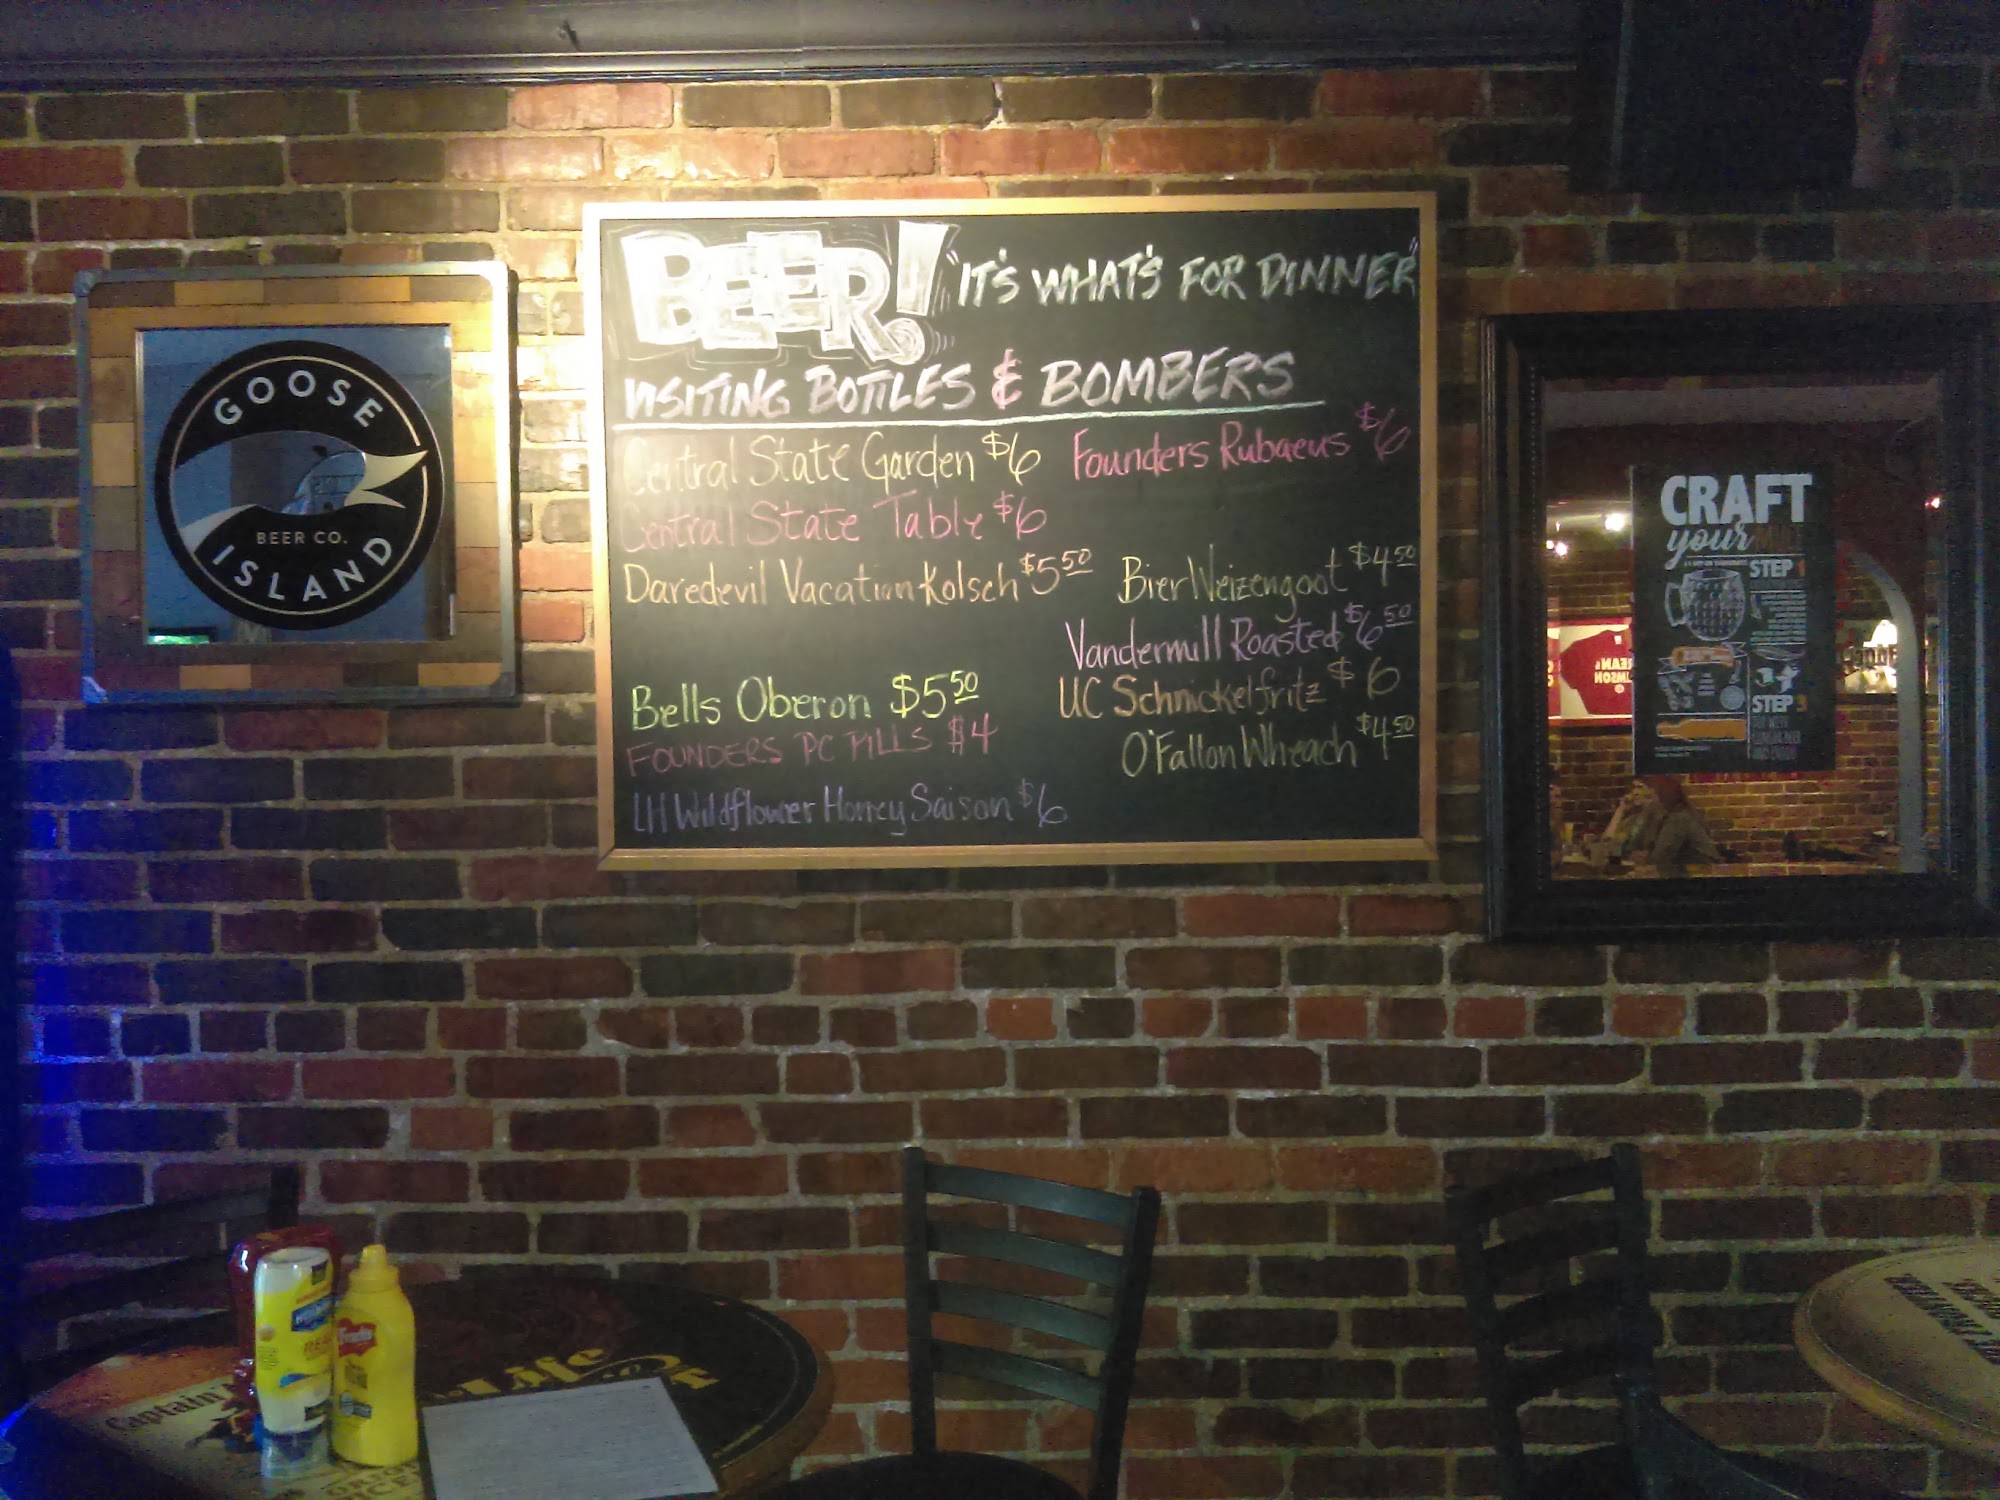 BEER! "IT'S WHAT'S FOR DINNER"
VISITING BOTTLES & BOMBERS
Central State Garden $6
Founders Rubaeus $6
Central State Table $6
Daredevil Vacation Kolsch $5.50
Bier Weizengoot $4.50
Vandermill Roasted $6.50
Bells Oberon $5.50
UC Schnickelfritz $6
FOUNDERS PC PILLS $4
O'Fallon Wheach $4.50
LH Wildflower Honey Saison $6
GOOSE
BEER CO.
ISLAND
CRAFT
your
STEP 1
STEP 3
Captain